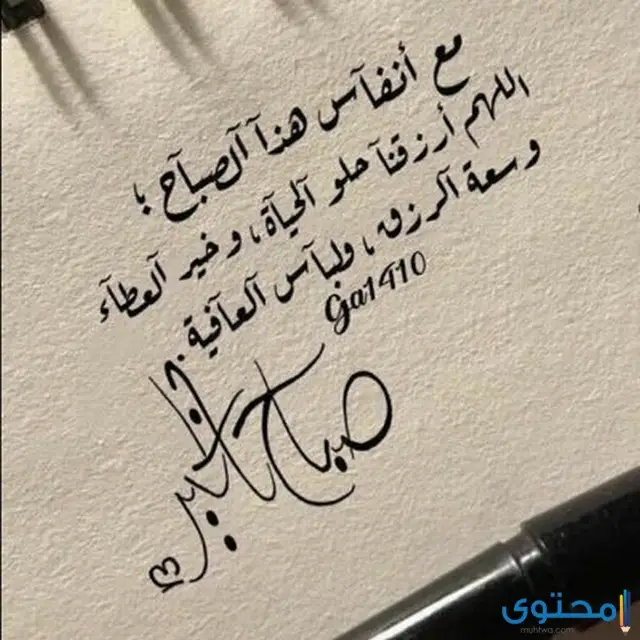 مع أنفآس هذآ آلصبآح ؛
اللهم أرزقنآ حلو آلحيآة ، و خير آلعطآء
و سعة آلرزق ، ولبآس آلعآفية .
Ga1410
صباح الخير
محتوى
muhtwa.com